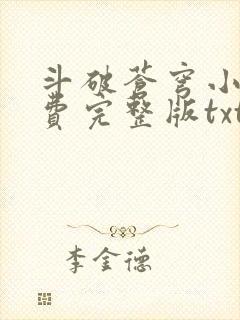 斗破苍穹小
费完整版txt
李金德